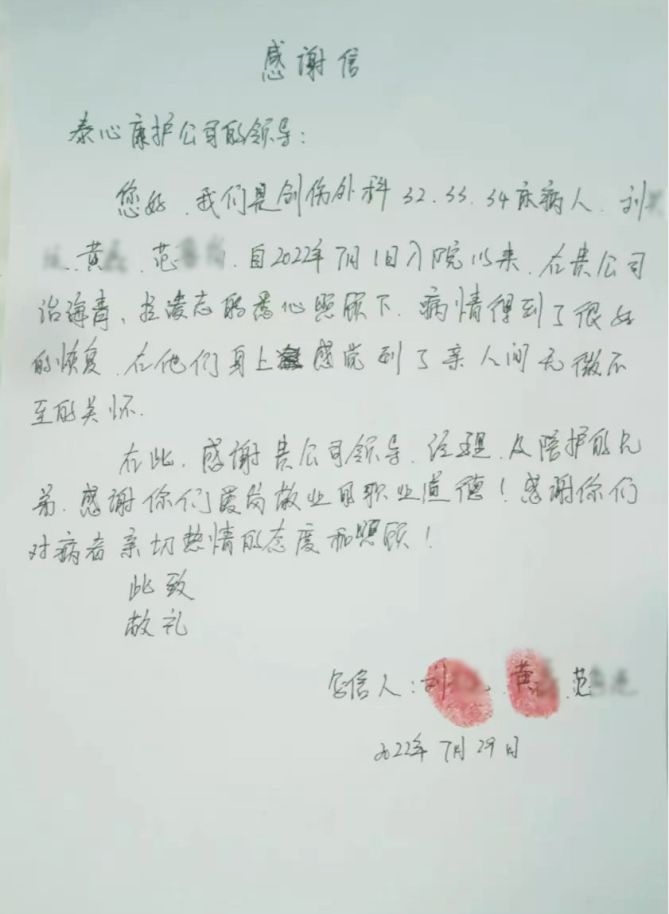 感谢信
泰心康护公司的领导：
您好、我们是创伤外科32.33.34床病人、刘
、黄 、范 、自2022年7月1日入院以来、在贵公司
治海青、 凌志的悉心照顾下、病情得到了很好
的恢复、在他们身上感觉到了亲人间无微不
至的关怀.
在此、感谢贵公司领导、经理、及陪护的兄
弟、感谢你们爱岗敬业的职业道德！感谢你们
对病者亲切热情的态度和照顾！
此致
敬礼
写信人：刘 、黄 、范
2022年7月29日